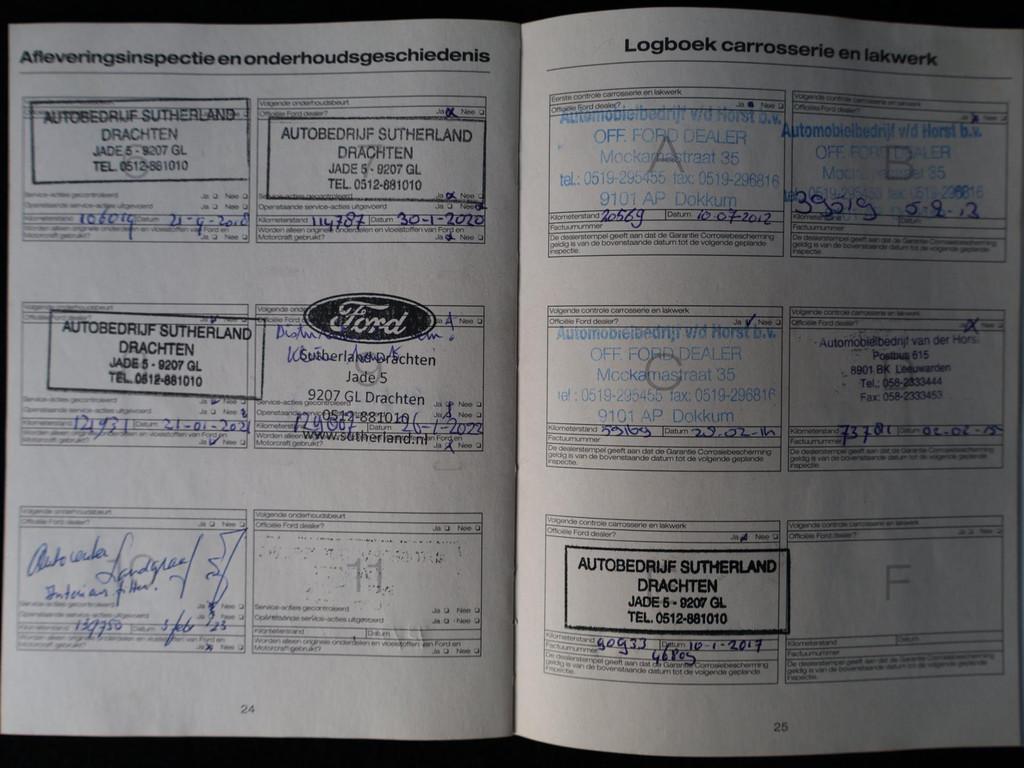 Afleveringsinspectie en onderhoudsgeschiedenis
AUTOBEDRIJF SUTHERLAND
DRACHTEN
JADE 5 - 9207 GL
TEL. 0512-881010
Service-acties gecontroleerd Ja Nee
Openstaande service-acties uitgevoerd Ja Nee
Kilometerstand 106019 Datum 21-9-2018
Worden alleen originele onderdelen en vloeistoffen van Ford en
Motorcraft gebruikt? Ja Nee
Volgende onderhoudsbeurt
Officiële Ford dealer? Ja Nee
AUTOBEDRIJF SUTHERLAND
DRACHTEN
JADE 5 - 9207 GL
TEL. 0512-881010
Service-acties gecontroleerd Ja Nee
Openstaande service-acties uitgevoerd Ja Nee
Kilometerstand 114787 Datum 30-1-2020
Worden alleen originele onderdelen en vloeistoffen van Ford en
Motorcraft gebruikt? Ja Nee
Volgende onderhoudsbeurt
Officiële Ford dealer? Ja Nee
AUTOBEDRIJF SUTHERLAND
DRACHTEN
JADE 5 - 9207 GL
TEL. 0512-881010
Service-acties gecontroleerd Ja Nee
Openstaande service-acties uitgevoerd Ja Nee
Kilometerstand 121931 Datum 21-01-2021
Worden alleen originele onderdelen en vloeistoffen van Ford en
Motorcraft gebruikt? Ja Nee
Volgende onderhoudsbeurt
Officiële Ford dealer? Ja Nee
Ford
Sutherland Drachten
Jade 5
9207 GL Drachten
0512-881010
www.sutherland.nl
Service-acties gecontroleerd Ja Nee
Kilometerstand 129007 Datum 26-1-2022
Motorcraft gebruikt? Ja Nee
Volgende onderhoudsbeurt
Officiële Ford dealer? Ja Nee
Autocenter Landgraaf
Interieur filter.
Service-acties gecontroleerd Ja Nee
Openstaande service-acties uitgevoerd Ja Nee
139950 3 feb 23
Worden alleen originele onderdelen en vloeistoffen van Ford en
Motorcraft gebruikt? Ja Nee
Volgende onderhoudsbeurt
Officiële Ford dealer? Ja Nee
11
Service-acties gecontroleerd Ja Nee
Openstaande service-acties uitgevoerd Ja Nee
Kilometerstand Datum
Worden alleen originele onderdelen en vloeistoffen van Ford en
Motorcraft gebruikt? Ja Nee
24
Logboek carrosserie en lakwerk
Eerste controle carrosserie en lakwerk
Officiële Ford dealer? Ja Nee
A
Automobielbedrijf v/d Horst b.v.
OFF. FORD DEALER
Mockamastraat 35
tel.: 0519-295455 fax: 0519-296816
9101 AP Dokkum
Kilometerstand 20569 Datum 10-07-2012
Factuurnummer
De dealerstempel geeft aan dat de Garantie Corrosiebescherming
geldig is van de bovenstaande datum tot de volgende geplande
inspectie.
Volgende controle carrosserie en lakwerk
Officiële Ford dealer? Ja Nee
B
Automobielbedrijf v/d Horst b.v.
OFF. FORD DEALER
39019 5-2-13
Factuurnummer
De dealerstempel geeft aan dat de Garantie Corrosiebescherming
geldig is van de bovenstaande datum tot de volgende geplande
inspectie.
Volgende controle carrosserie en lakwerk
Officiële Ford dealer? Ja Nee
C
Automobielbedrijf v/d Horst b.v.
OFF. FORD DEALER
Mockamastraat 35
tel.: 0519-295455 fax: 0519-296816
9101 AP Dokkum
Kilometerstand 55169 Datum 25-02-14
Factuurnummer
De dealerstempel geeft aan dat de Garantie Corrosiebescherming
geldig is van de bovenstaande datum tot de volgende geplande
inspectie.
Volgende controle carrosserie en lakwerk
Officiële Ford dealer? Nee
Automobielbedrijf van der Horst
Postbus 615
8901 BK Leeuwarden
Tel.: 058-2333444
Fax: 058-2333453
Kilometerstand 73781 Datum 02-02-15
Factuurnummer
De dealerstempel geeft aan dat de Garantie Corrosiebescherming
geldig is van de bovenstaande datum tot de volgende geplande
inspectie.
Volgende controle carrosserie en lakwerk
Officiële Ford dealer? Ja Nee
AUTOBEDRIJF SUTHERLAND
DRACHTEN
JADE 5 - 9207 GL
TEL. 0512-881010
Kilometerstand 90933 Datum 10-1-2017
Factuurnummer 46805
De dealerstempel geeft aan dat de Garantie Corrosiebescherming
geldig is van de bovenstaande datum tot de volgende geplande
inspectie.
Volgende controle carrosserie en lakwerk
Officiële Ford dealer? Ja Nee
F
Kilometerstand Datum
Factuurnummer
De dealerstempel geeft aan dat de Garantie Corrosiebescherming
geldig is van de bovenstaande datum tot de volgende geplande
inspectie.
25